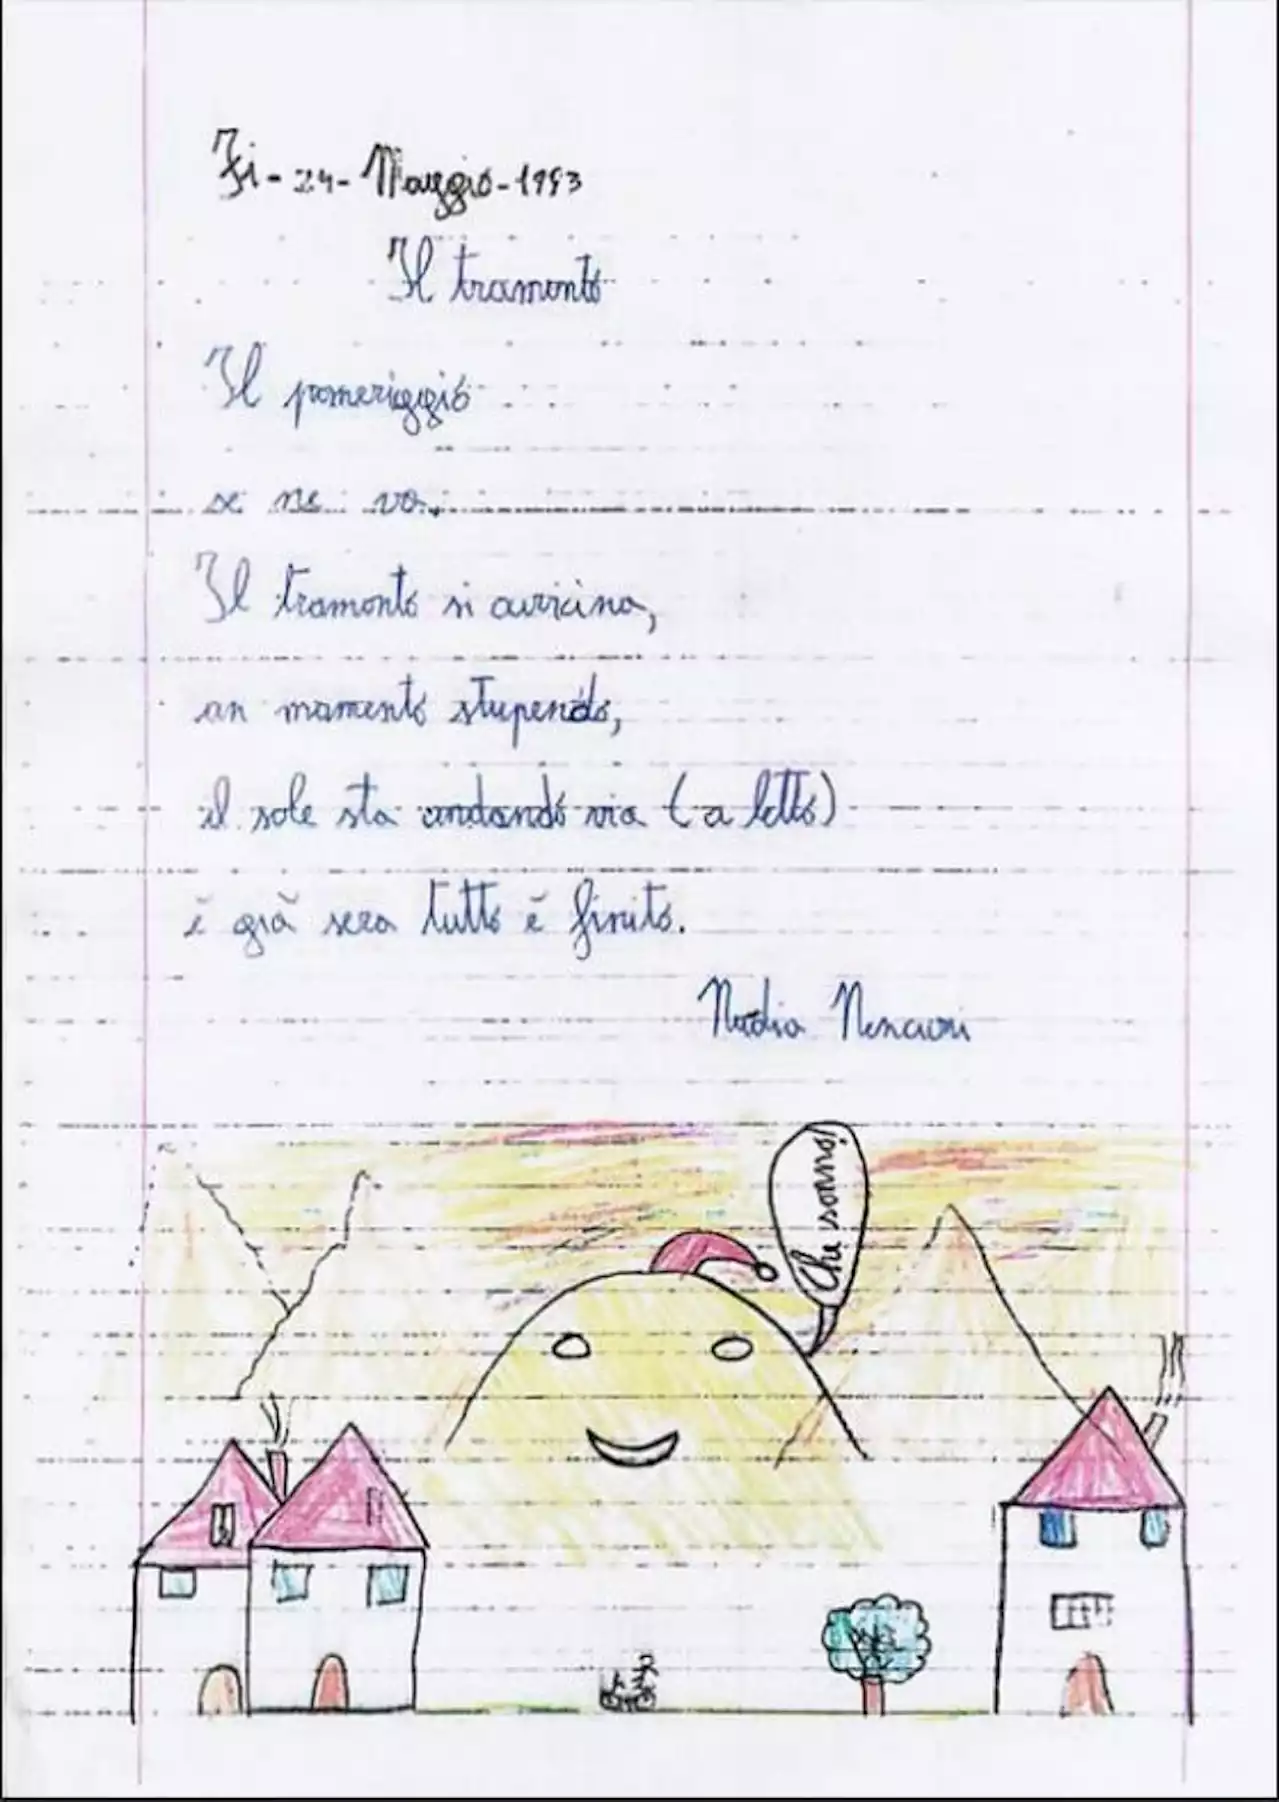 Fi-24-Maggio-1993
Il tramonto
Il pomeriggio
se ne va.
Il tramonto si avvicina,
un momento stupendo,
il sole sta andando via (a letto)
è già sera tutto è finito.
Nadia Nencioni
Che sonno!